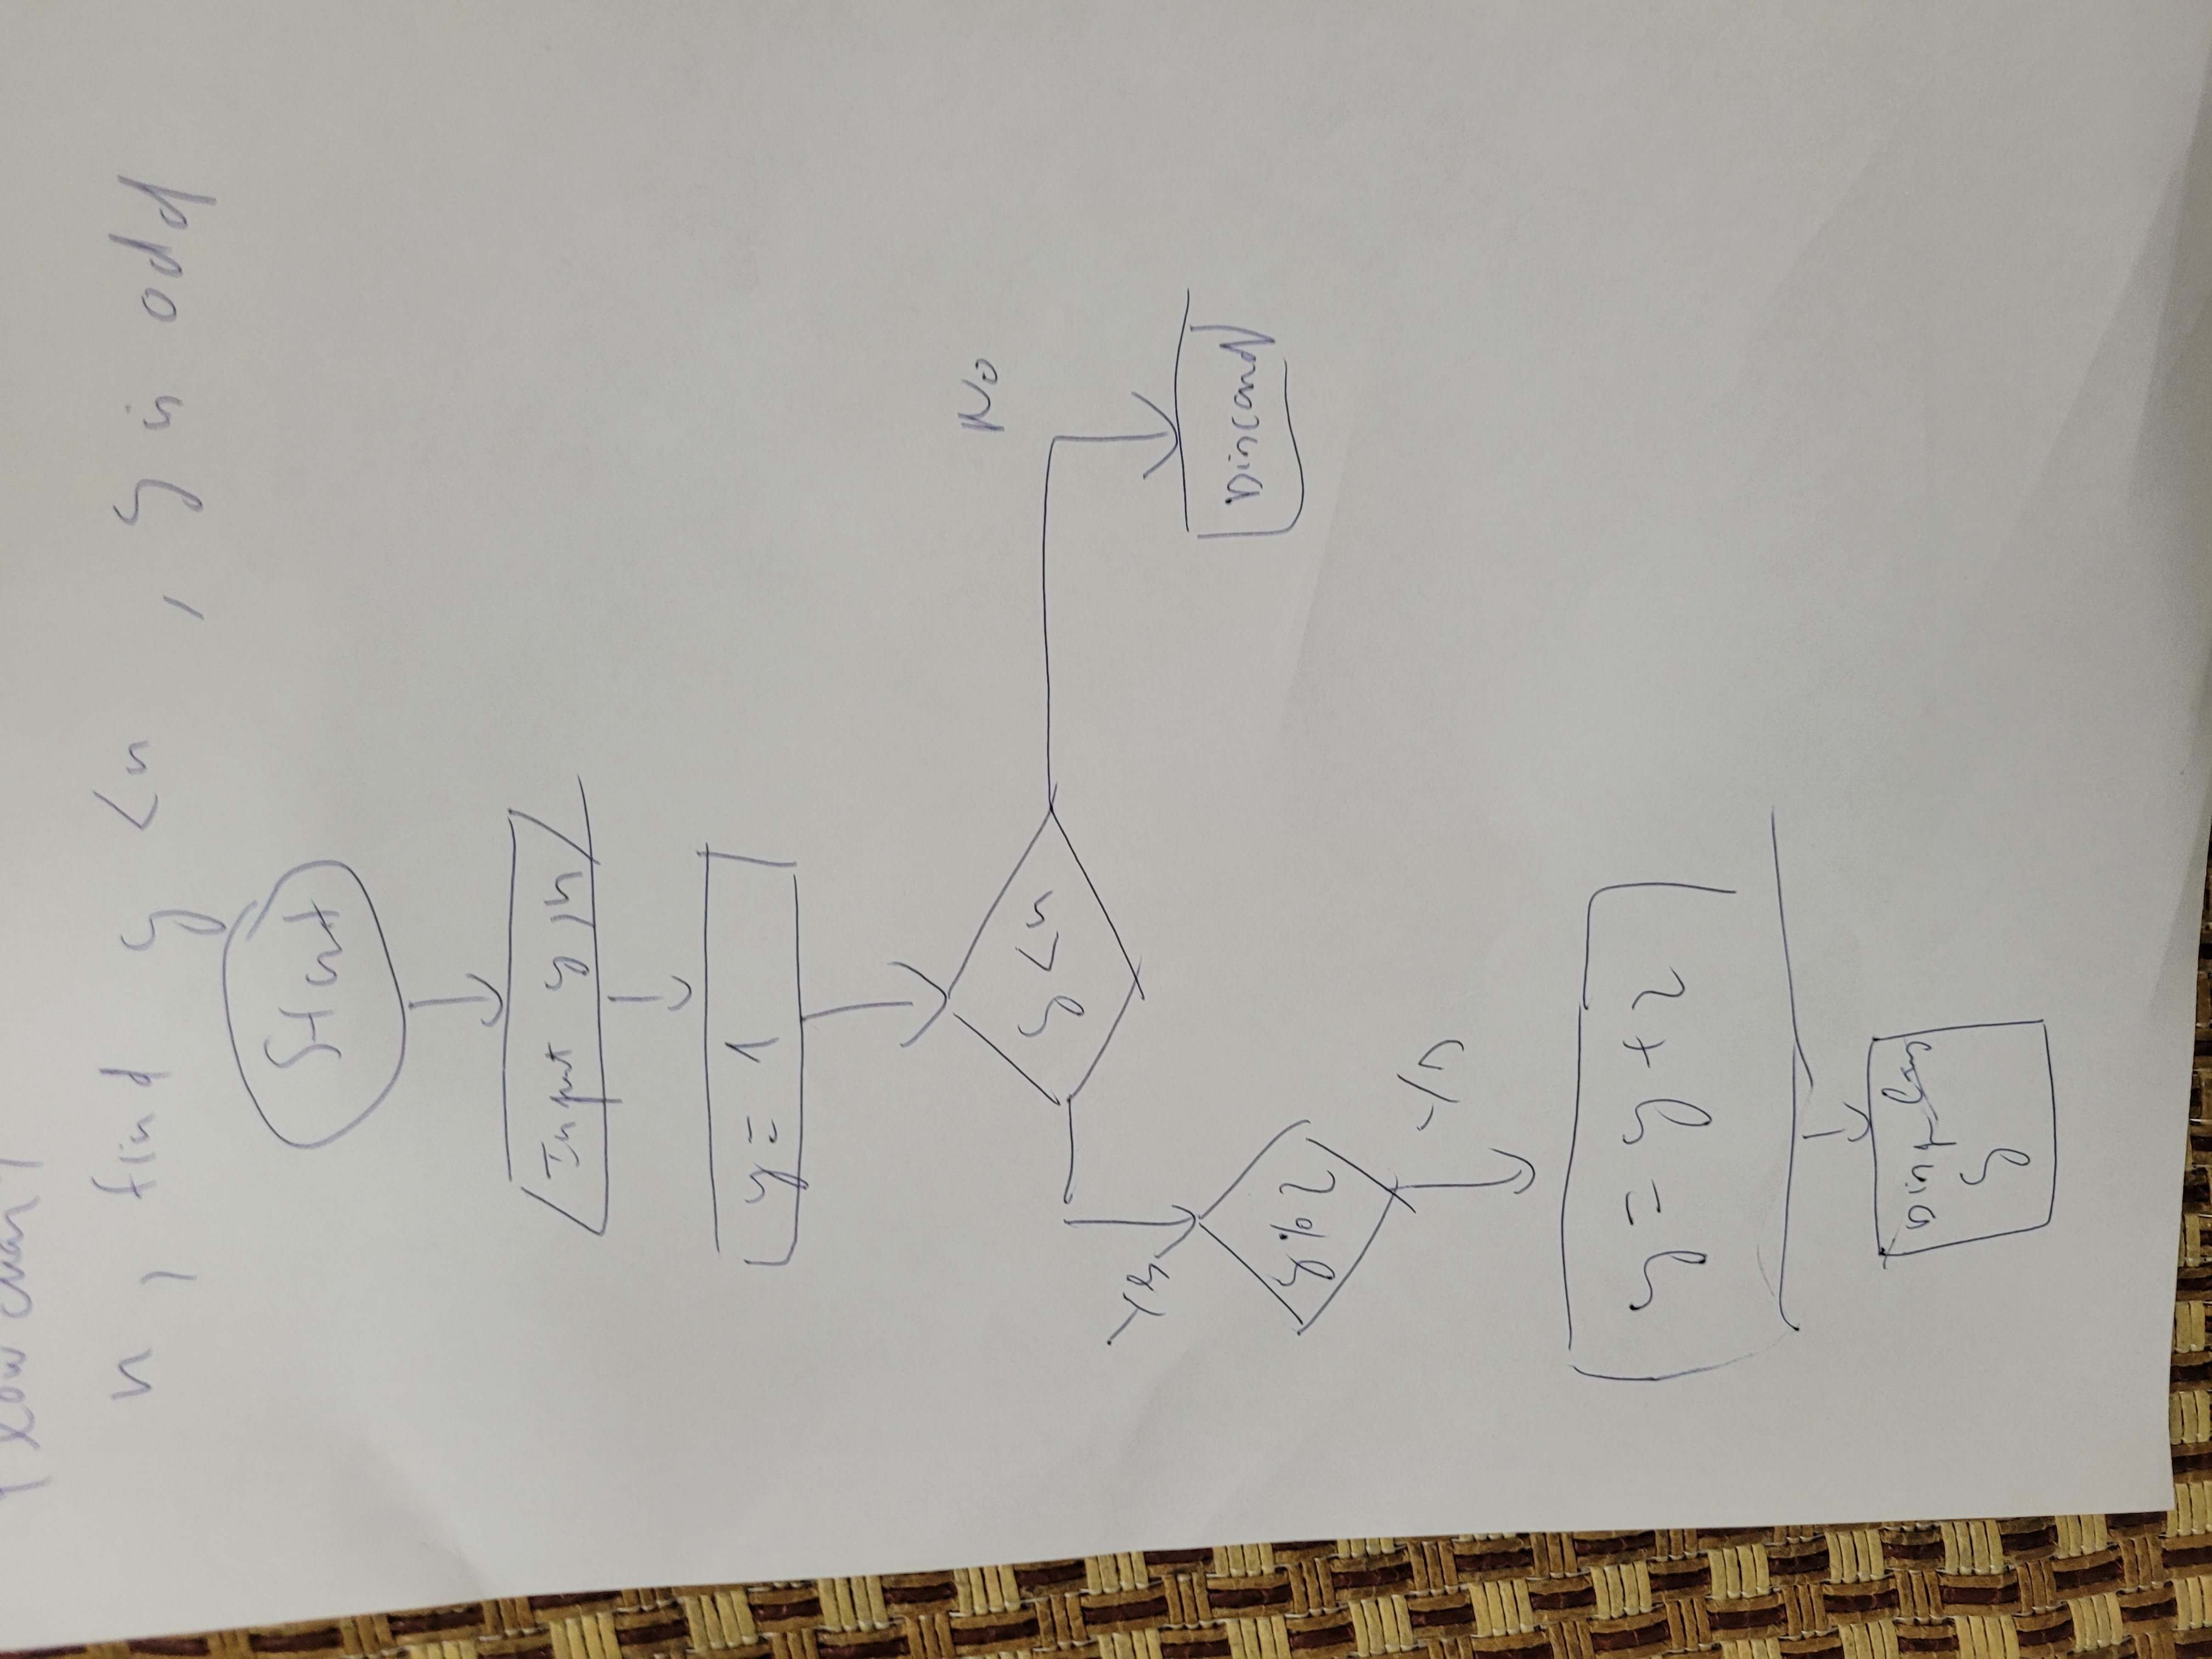 Flowchart
n, find y < n, y is odd
Start
Input y, n
y = 1
No
y < n
Yes
Discard
y % 2
y = y + 2
Display
y